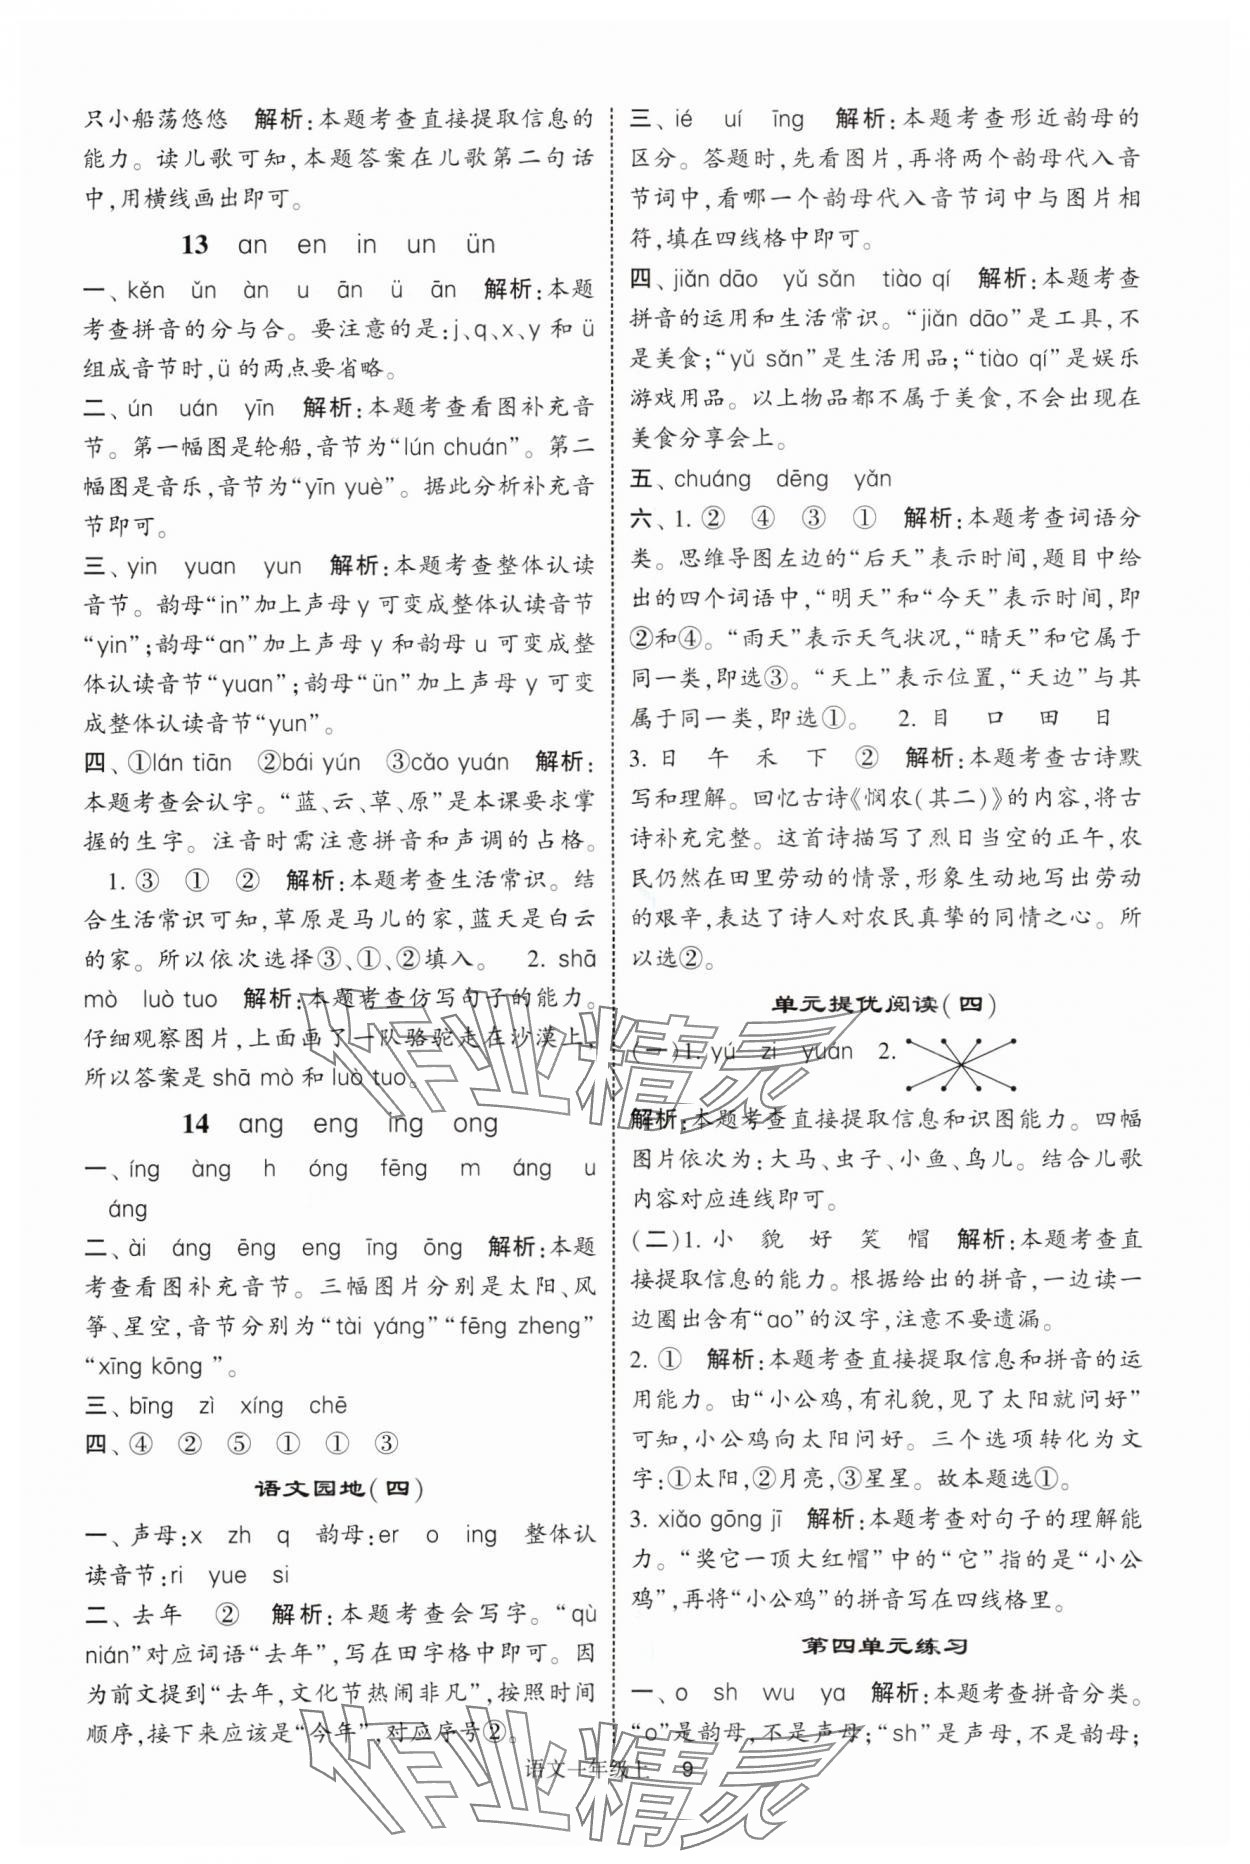 只小船荡悠悠　解析:本题考查直接提取信息的
能力。读儿歌可知,本题答案在儿歌第二句话
中,用横线画出即可。
13　an　en　in　un　ün
一、kěn　ǔn　àn　u　ān　ü　ān　解析:本题
考查拼音的分与合。要注意的是:j、q、x、y 和 ü
组成音节时,ü 的两点要省略。
二、ún　uán　yīn　解析:本题考查看图补充音
节。第一幅图是轮船,音节为“lún chuán”。第二
幅图是音乐,音节为“yīn yuè”。据此分析补充音
节即可。
三、yin　yuan　yun　解析:本题考查整体认读
音节。韵母“in”加上声母 y 可变成整体认读音节
“yin”;韵母“an”加上声母 y 和韵母 u 可变成整
体认读音节“yuan”;韵母“ün”加上声母 y 可变
成整体认读音节“yun”。
四、①lán tiān　②bái yún　③cǎo yuán　解析:
本题考查会认字。“蓝、云、草、原”是本课要求掌
握的生字。注音时需注意拼音和声调的占格。
1. ③　①　②　解析:本题考查生活常识。结
合生活常识可知,草原是马儿的家,蓝天是白云
的家。所以依次选择③、①、②填入。　2. shā
mò　luò tuo　解析:本题考查仿写句子的能力。
仔细观察图片,上面画了一队骆驼走在沙漠上,
所以答案是 shā mò 和 luò tuo。
14　ang　eng　ing　ong
一、íng　àng　h　óng　fēng　m　áng　u
áng
二、ài　áng　ēng　eng　īng　ōng　解析:本题
考查看图补充音节。三幅图片分别是太阳、风
筝、星空,音节分别为“tài yáng”“fēng zheng”
“xīng kōng ”。
三、bīng　zì　xíng　chē
四、④　②　⑤　①　①　③
语文园地(四)
一、声母:x　zh　q　韵母:er　o　ing　整体认
读音节:ri　yue　si
二、去年　②　解析:本题考查会写字。“qù
nián”对应词语“去年”,写在田字格中即可。因
为前文提到“去年,文化节热闹非凡”,按照时间
顺序,接下来应该是“今年”,对应序号②。
三、ié　uí　īng　解析:本题考查形近韵母的
区分。答题时,先看图片,再将两个韵母代入音
节词中,看哪一个韵母代入音节词中与图片相
符,填在四线格中即可。
四、jiǎn dāo　yǔ sǎn　tiào qí　解析:本题考查
拼音的运用和生活常识。“jiǎn dāo”是工具,不
是美食;“yǔ sǎn”是生活用品;“tiào qí”是娱乐
游戏用品。以上物品都不属于美食,不会出现在
美食分享会上。
五、chuáng　dēng　yǎn
六、1. ②　④　③　①　解析:本题考查词语分
类。思维导图左边的“后天”表示时间,题目中给
出的四个词语中,“明天”和“今天”表示时间,即
②和④。“雨天”表示天气状况,“晴天”和它属于
同一类,即选③。“天上”表示位置,“天边”与其
属于同一类,即选①。　2. 目　口　田　日
3. 日　午　禾　下　②　解析:本题考查古诗默
写和理解。回忆古诗《悯农(其二)》的内容,将古
诗补充完整。这首诗描写了烈日当空的正午,农
民仍然在田里劳动的情景,形象生动地写出劳动
的艰辛,表达了诗人对农民真挚的同情之心。所
以选②。
单元提优阅读(四)
(一)1. yú　zi　yuán　2.
解析:本题考查直接提取信息和识图能力。四幅
图片依次为:大马、虫子、小鱼、鸟儿。结合儿歌
内容对应连线即可。
(二)1. 小　貌　好　笑　帽　解析:本题考查直
接提取信息的能力。根据给出的拼音,一边读一
边圈出含有“ao”的汉字,注意不要遗漏。
2. ①　解析:本题考查直接提取信息和拼音的运
用能力。由“小公鸡,有礼貌,见了太阳就问好”
可知,小公鸡向太阳问好。三个选项转化为文
字:①太阳,②月亮,③星星。故本题选①。
3. xiǎo gōng jī　解析:本题考查对句子的理解能
力。“奖它一顶大红帽”中的“它”指的是“小公
鸡”,再将“小公鸡”的拼音写在四线格里。
第四单元练习
一、o　sh　wu　ya　解析:本题考查拼音分类。
“o”是韵母,不是声母;“sh”是声母,不是韵母;
语文一年级上　9
作业精灵
作业精灵